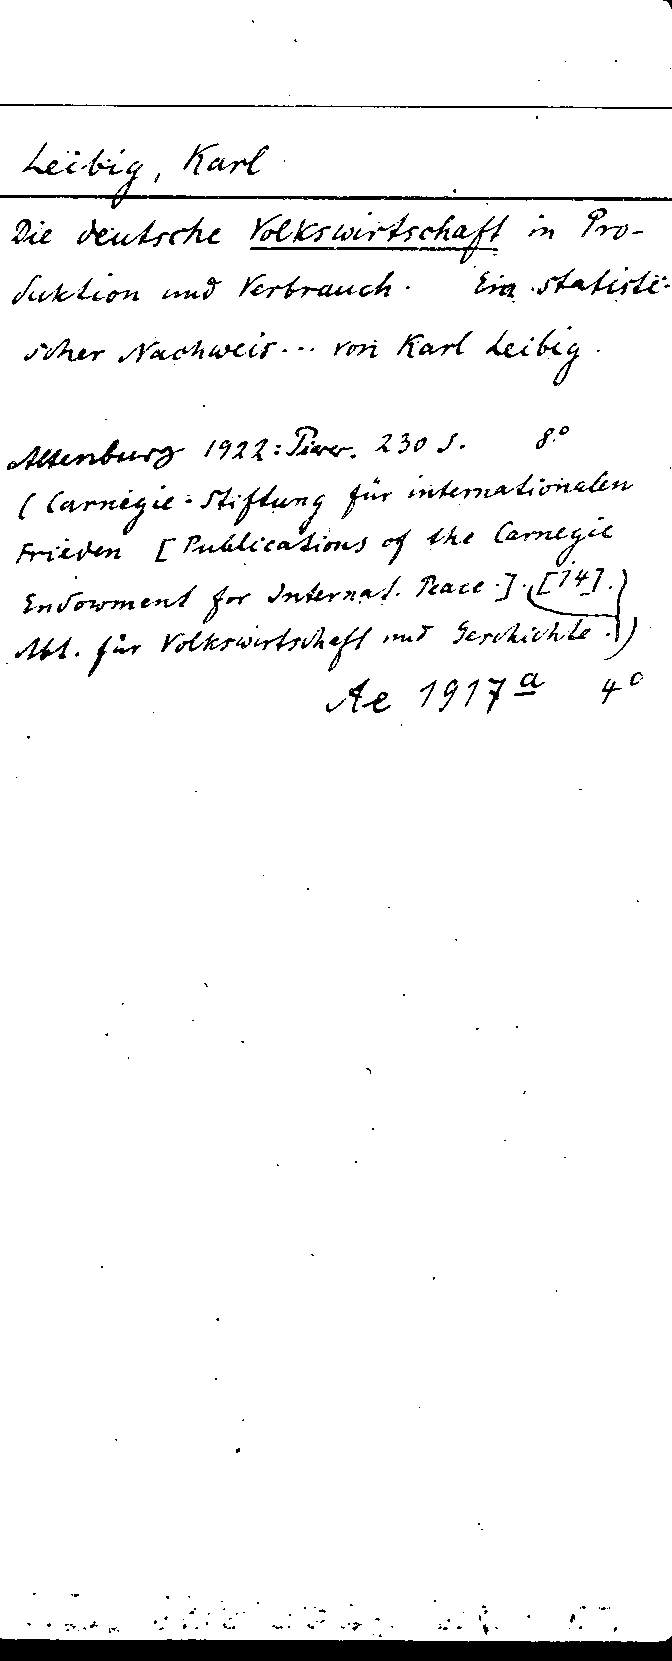 Leibig, Karl
Die deutsche Volkswirtschaft in Pro-
duktion und Verbrauch. Ein statisti-
scher Nachweis... von Karl Leibig.
Altenburg 1922: Pierer. 230 S. 8°
(Carnegie-Stiftung für internationalen
Frieden [Publications of the Carnegie
Endowment for Internat. Peace.]. [14].)
Abt. für Volkswirtschaft und Geschichte.)
Ae 1917ª 4°